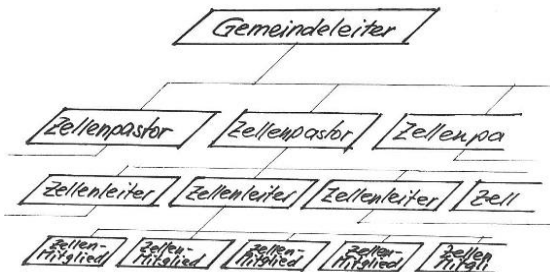 Gemeindeleiter
Zellenpastor Zellenpastor Zellenpa
Zellenleiter Zellenleiter Zellenleiter Zell
Zellen- Zellen- Zellen- Zellen- Zellen
Mitglied Mitglied Mitglied Mitglied Mitgli